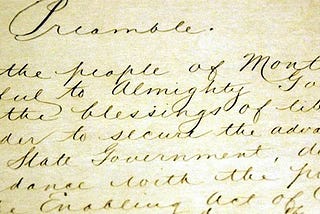 Preamble.
the people of Mont
ful to Almighty Go
the blessings of li
der to secure the adva
State Government, d
dance with the p
Enabling Act of